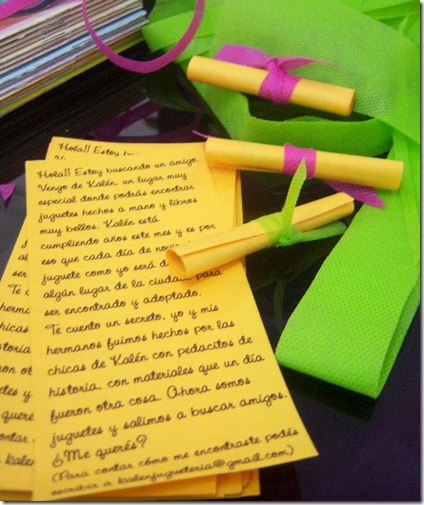 Hola!! Estoy bu
Hola!! Estoy buscando un amigo.
Vengo de Kalén, un lugar muy
especial donde podrás encontrar
juguetes hechos a mano y libros
muy bellos. Kalén está
cumpliendo años este mes y es por
eso que cada día de novie
juguete como yo será d
algún lugar de la ciudad, para
ser encontrado y adoptado.
Te cuento un secreto, yo y mis
hermanos fuimos hechos por las
chicas de Kalén con pedacitos de
historia, con materiales que un día
fueron otra cosa. Ahora somos
juguetes y salimos a buscar amigos.
¿Me querés?
(Para contar cómo me encontraste podés
escribir a kalenjugueteria@gmail.com)